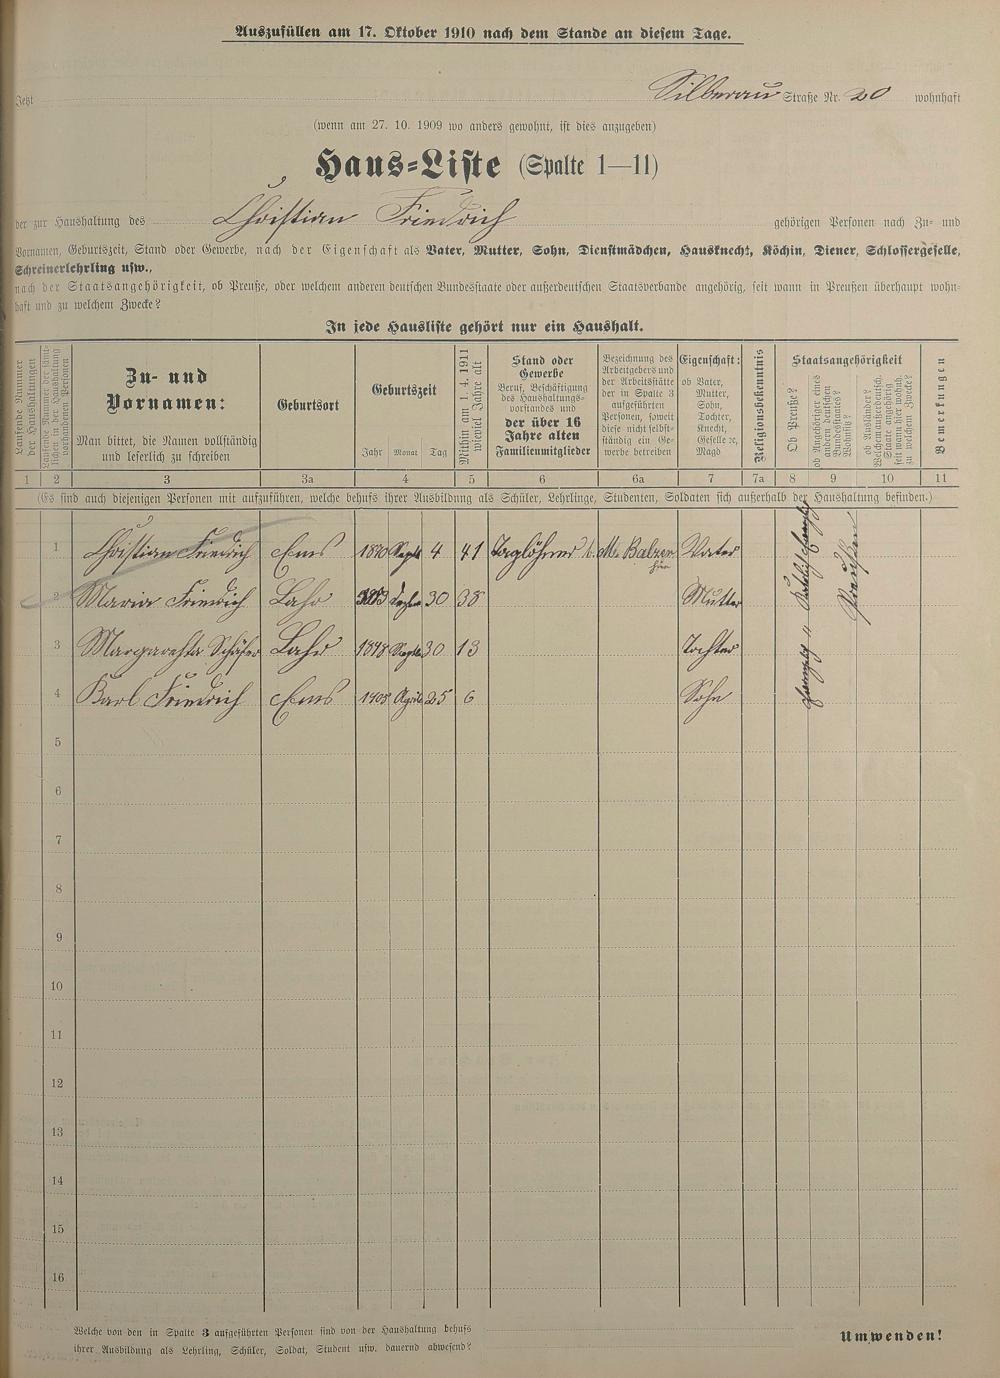 Auszufüllen am 17. Oktober 1910 nach dem Stande an diesem Tage.
Jetzt Silberau Straße Nr. 20 wohnhaft
(wenn am 27. 10. 1909 wo anders gewohnt, ist dies anzugeben)
Haus-Liste (Spalte 1—11)
der zur Haushaltung des Christian Friedrich gehörigen Personen nach Zu- und
Vornamen, Geburtszeit, Stand oder Gewerbe, nach der Eigenschaft als Vater, Mutter, Sohn, Dienstmädchen, Hausknecht, Köchin, Diener, Schlossergeselle,
Schreinerlehrling usw.,
nach der Staatsangehörigkeit, ob Preuße, oder welchem anderen deutschen Bundesstaate oder außerdeutschen Staatsverbande angehörig, seit wann in Preußen überhaupt wohn-
haft und zu welchem Zwecke?
In jede Hausliste gehört nur ein Haushalt.
Laufende Nummer
der Haushaltungen
Laufende Nummer der sämt-
lichen in der Haushaltung
vorhandenen Personen
Zu- und
Vornamen:
Man bittet, die Namen vollständig
und leserlich zu schreiben
Geburtsort
Geburtszeit
Jahr Monat Tag
Mithin am 1. 4. 1911
wieviel Jahre alt
Stand oder
Gewerbe
Beruf, Beschäftigung
des Haushaltungs-
vorstandes und
der über 16
Jahre alten
Familienmitglieder
Bezeichnung des
Arbeitgebers und
der Arbeitsstätte
der in Spalte 3
aufgeführten
Personen, soweit
diese nicht selbst-
ständig ein Ge-
werbe betreiben
Eigenschaft:
ob Vater,
Mutter,
Sohn,
Tochter,
Knecht,
Geselle ec,
Magd
Religionsbekenntnis
Staatsangehörigkeit
Ob Preuße?
ob Angehöriger eines
andern deutschen
Bundesstaates?
Wohnsitz?
ob Ausländer?
Welchem außerdeutsch.
Staate angehörig
seit wann hier wohnh.
zu welchem Zwecke?
Bemerkungen
1 2 3 3a 4 5 6 6a 7 7a 8 9 10 11
(Es sind auch diejenigen Personen mit aufzuführen, welche behufs ihrer Ausbildung als Schüler, Lehrlinge, Studenten, Soldaten sich außerhalb der Haushaltung befinden.)
1 Christian Friedrich Ems 1870 Septb 4 41 Taglöhner b. Balzer Vater
2 Maria Friedrich Lahr 30 38 Mutter
3 Margaretha Schäfer Lahr 30 13 Tochter
4 Karl Friedrich Ems 1905 April 25 6 Sohn
Preußen
5
6
7
8
9
10
11
12
13
14
15
16
Welche von den in Spalte 3 aufgeführten Personen sind von der Haushaltung behufs
ihrer Ausbildung als Lehrling, Schüler, Soldat, Student usw. dauernd abwesend?
Umwenden!